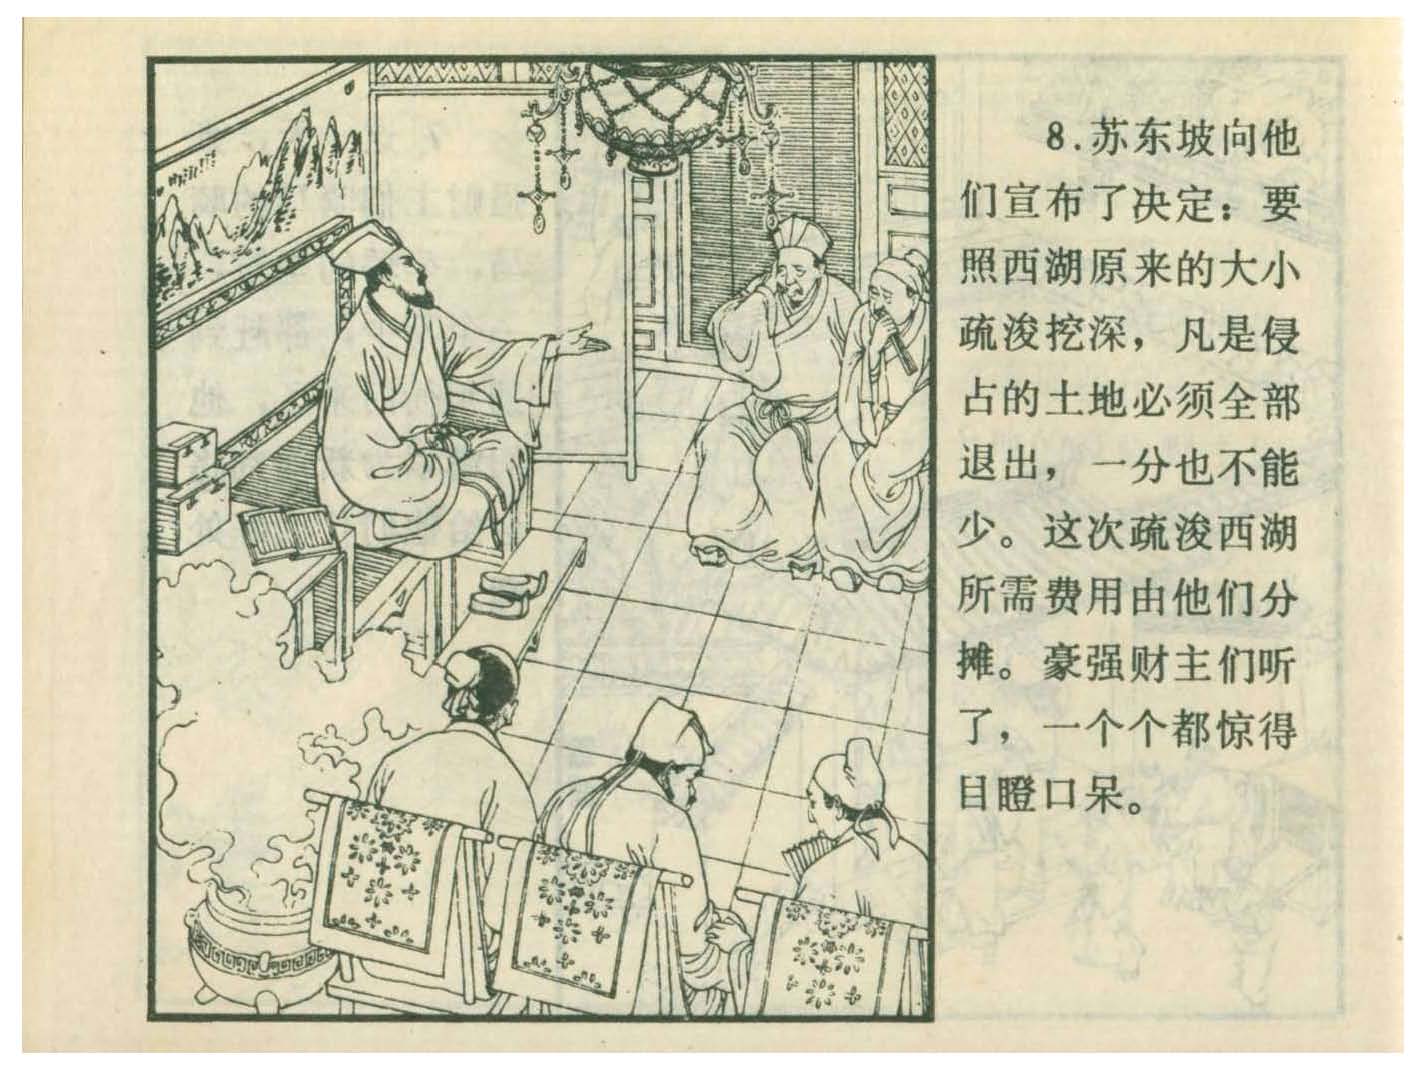 8.苏东坡向他
们宣布了决定：要
照西湖原来的大小
疏浚挖深，凡是侵
占的土地必须全部
退出，一分也不能
少。这次疏浚西湖
所需费用由他们分
摊。豪强财主们听
了，一个个都惊得
目瞪口呆。